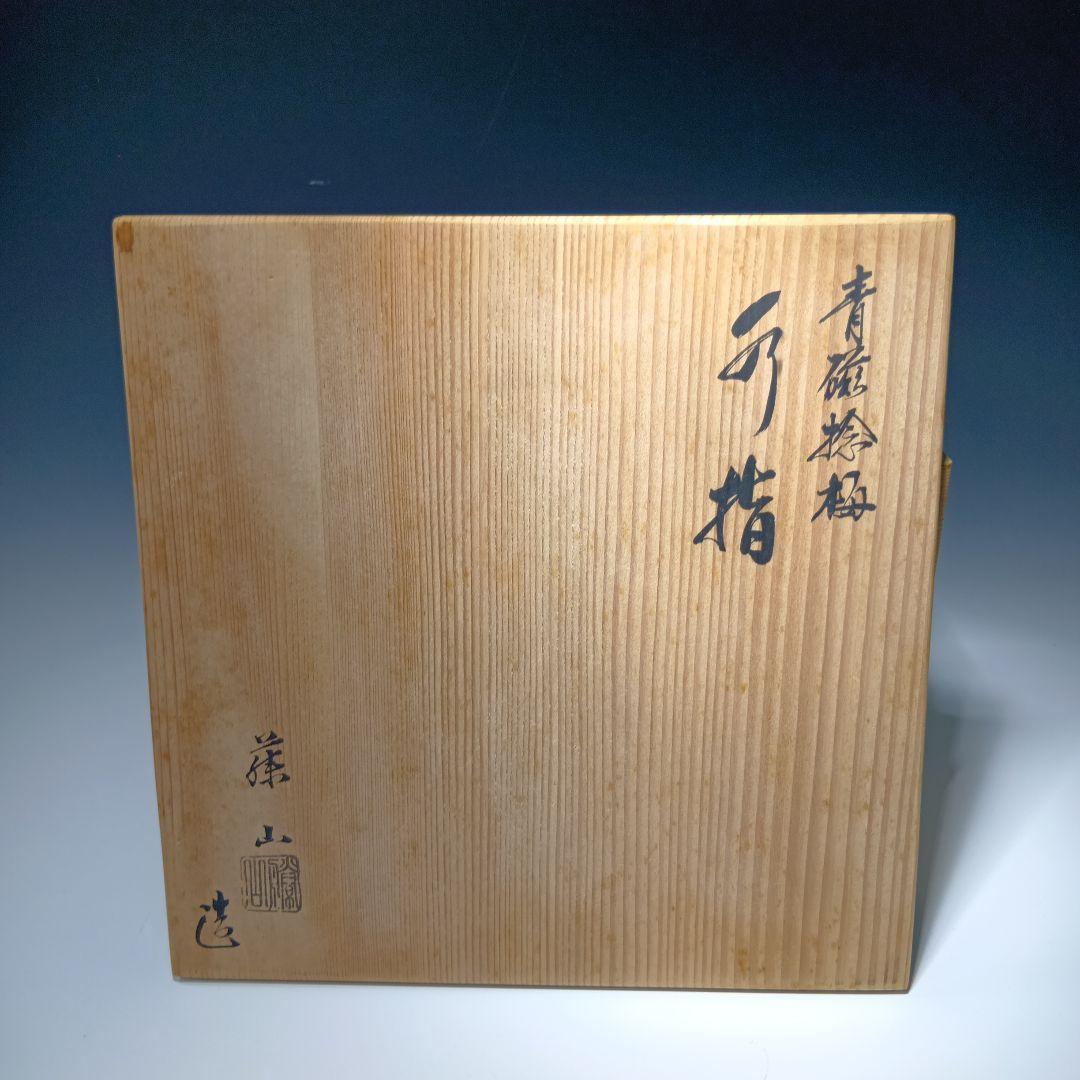 青磁捻梅
水指
藤山
造